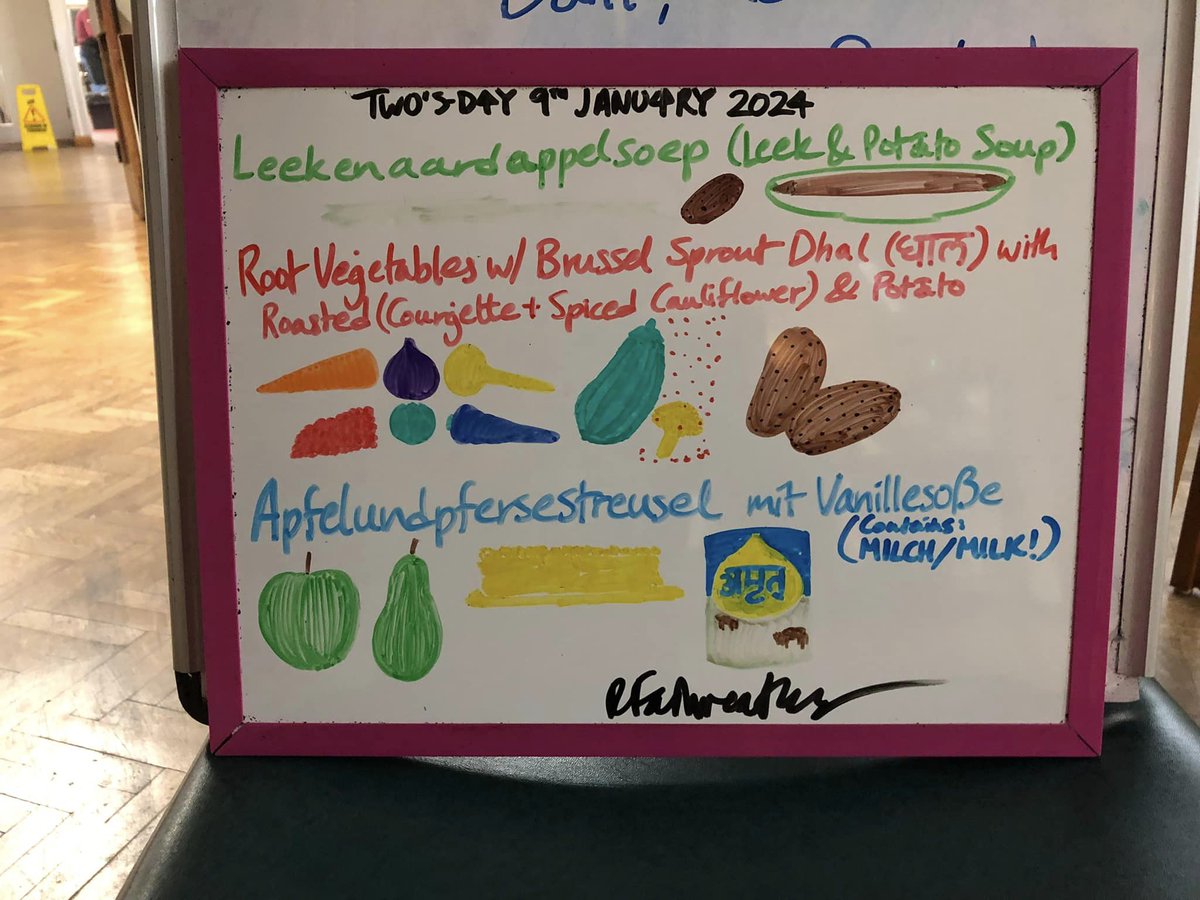 TWO'S-D4Y 9TH JANU4RY 2024
Leekenaardappelsoep (Leek & Potato Soup)
Root Vegetables w/ Brussel Sprout Dhal (धाल) with
Roasted (Courjette + Spiced Cauliflower) & Potato
Apfelundpfersestreusel mit Vanillesoße
(Contains:
MILCH/MILK!)
अमृत